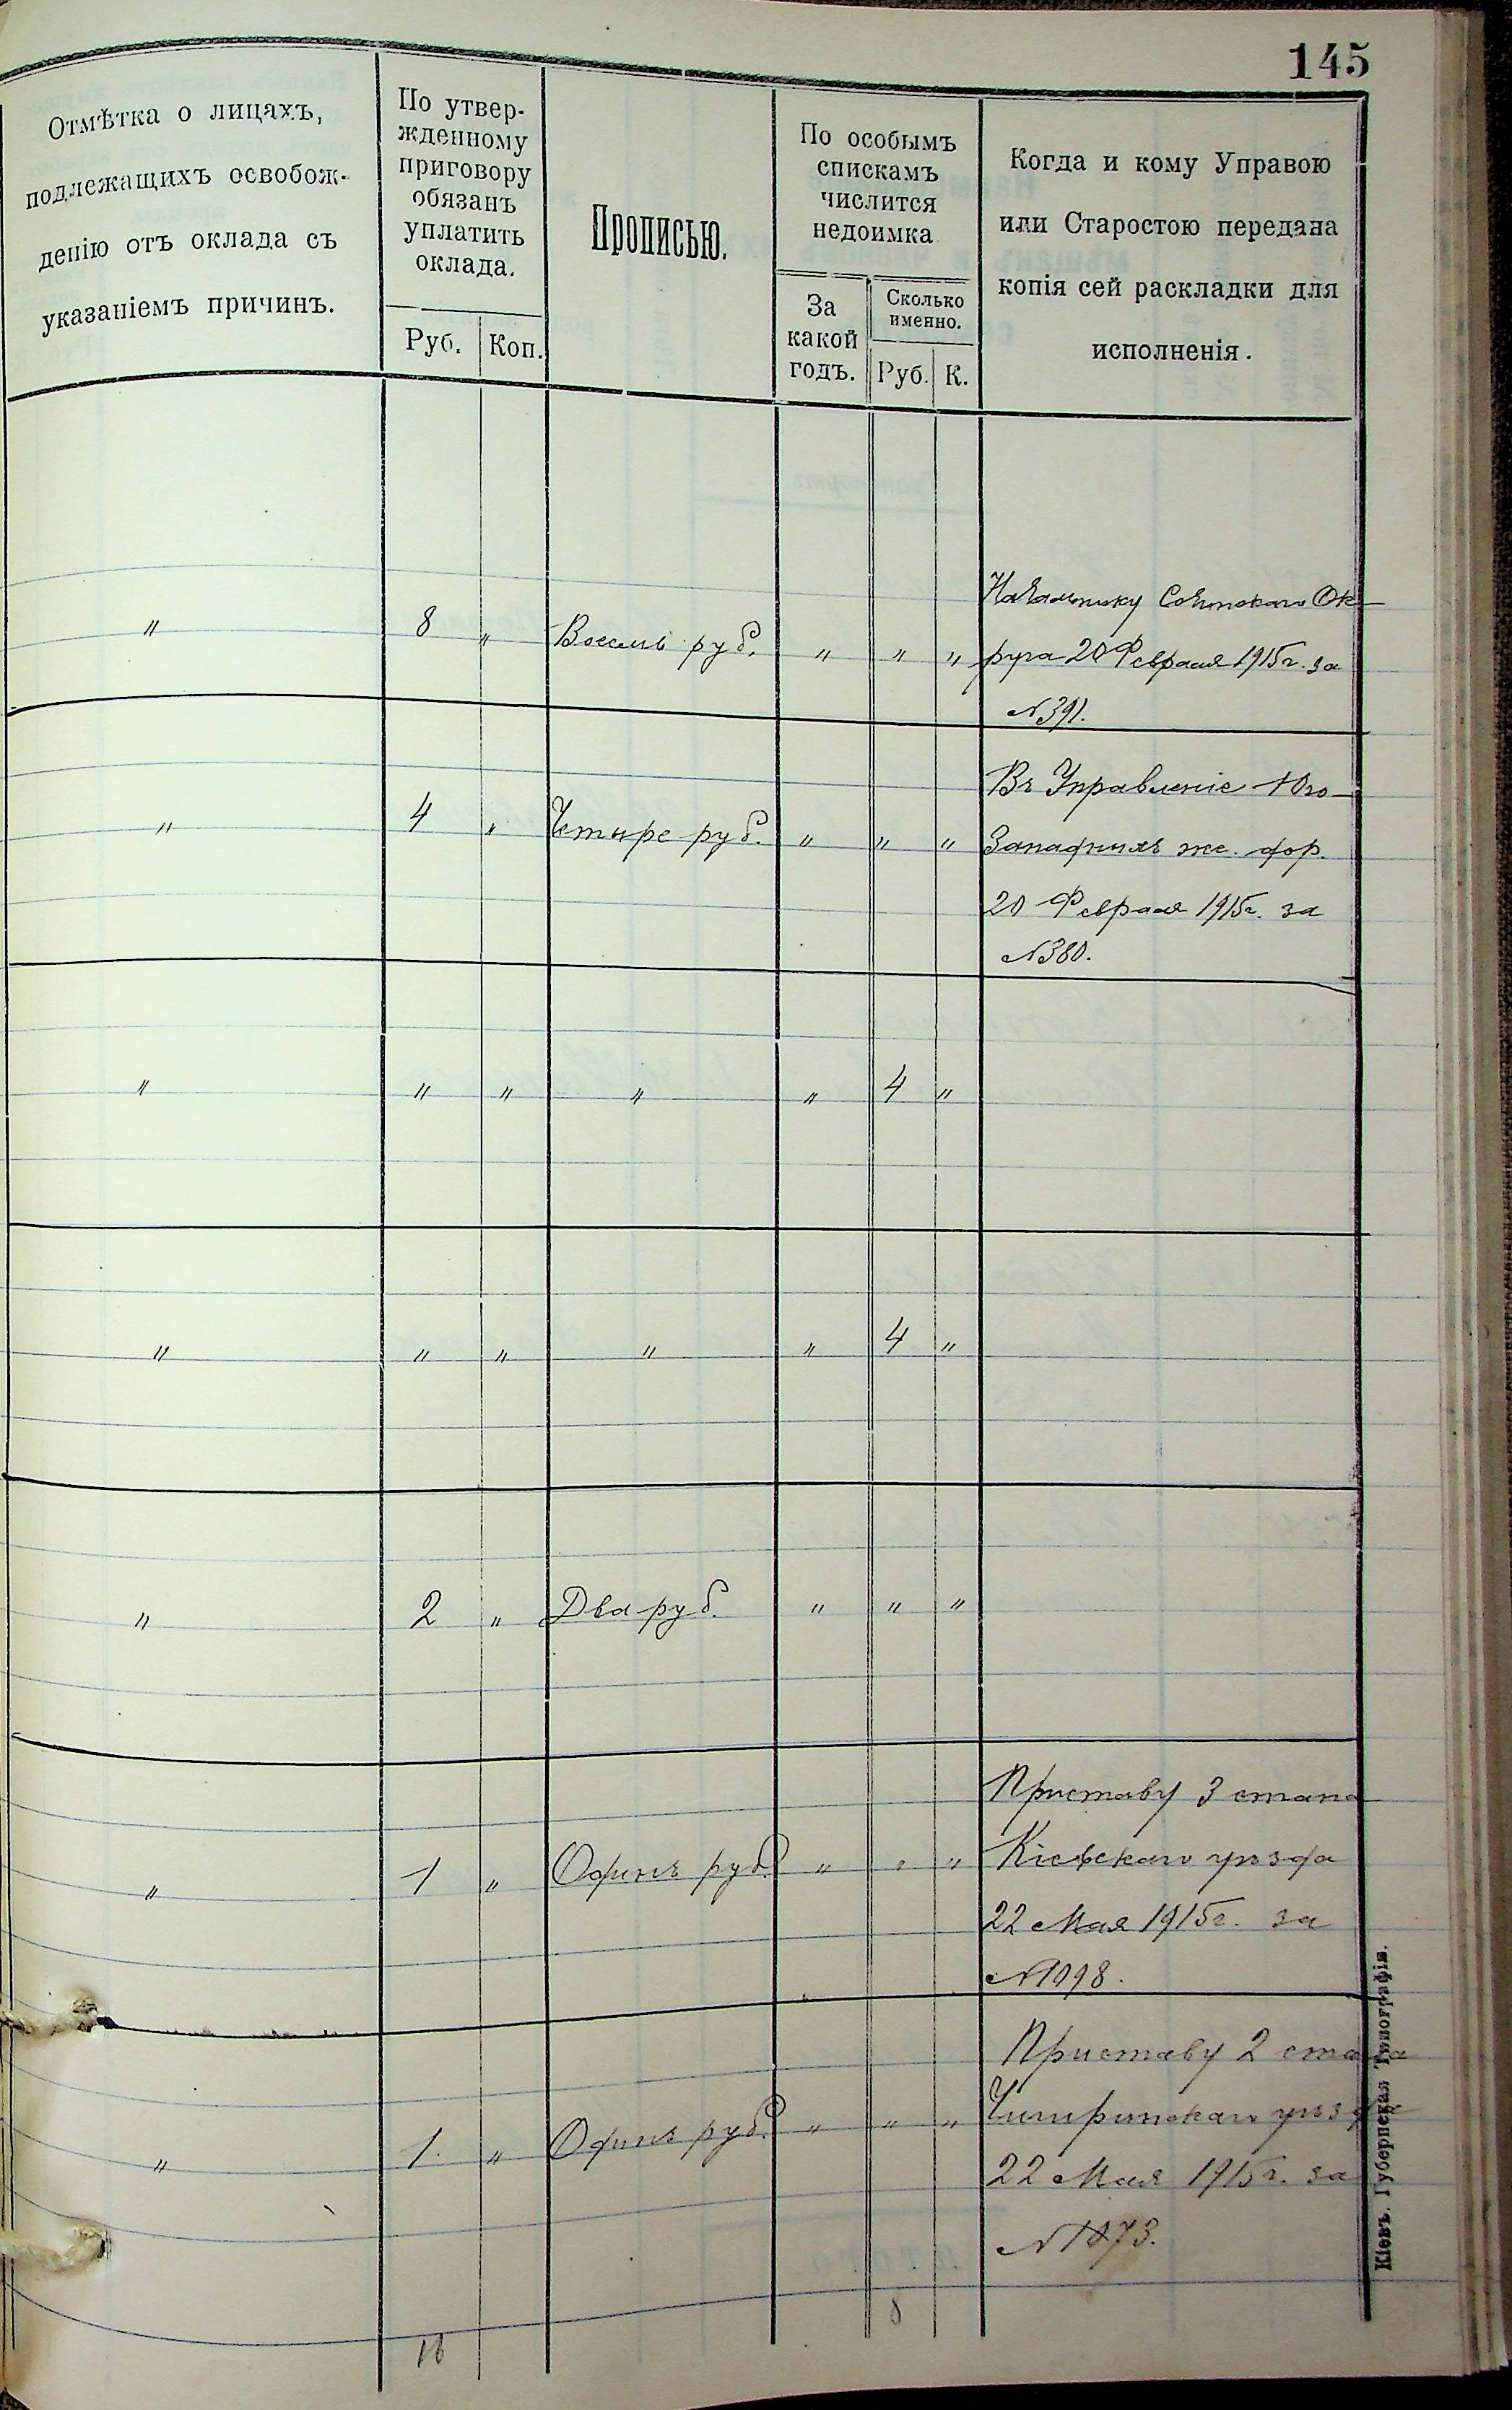 145
Отмѣтка о лицахъ,
подлежащихъ освобож-
денію отъ оклада съ
указаніемъ причинъ.
По утвер-
жденному
приговору
обязанъ
уплатить
оклада.
Руб. Коп.
Прописью.
По особымъ
спискамъ
числится
недоимка
За
какой
годъ.
Сколько
именно.
Руб. К.
Когда и кому Управою
или Старостою передана
копія сей раскладки для
исполненія.
Начальнику Ок-
" 8 " Восемь руб. " " " руга 20 Февраля 1915г. за
№391.
Въ Управленіе Юго-
" 4 " Четыре руб. " " " Западныхъ же. дор.
20 Февраля 1915г. за
№380.
" " " " " 4 "
" " " " " 4 "
" 2 " Два руб. " " "
Приставу 3 стана
" 1 " Одинъ руб. " " " Кіевскаго уѣзда
22 Мая 1915г. за
№1098.
Приставу 2 стана
" 1. " Одинъ руб. " " " Чигиринскаго уѣзда
22 Мая 1915г. за
№1073.
16 8
Кіевъ. Губернская Типографія.